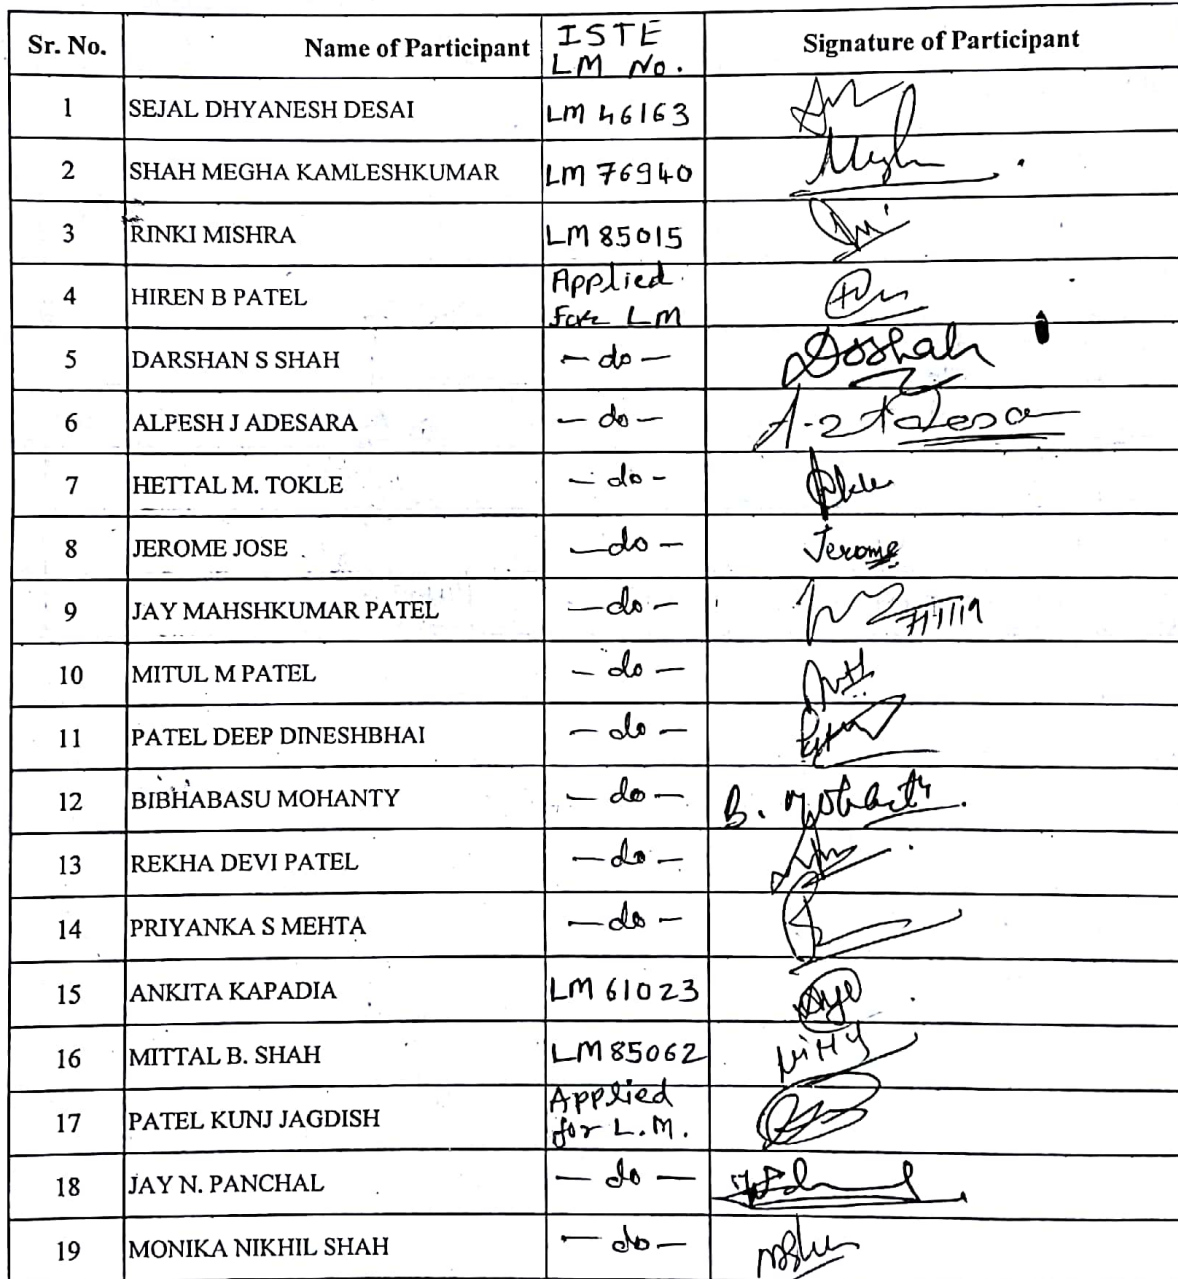 Sr. No. Name of Participant ISTE LM No. Signature of Participant
1 SEJAL DHYANESH DESAI LM 46163
2 SHAH MEGHA KAMLESHKUMAR LM 76940 Megh
3 RINKI MISHRA LM 85015
4 HIREN B PATEL Applied for LM
5 DARSHAN S SHAH — do — DSShah
6 ALPESH J ADESARA — do —
7 HETTAL M. TOKLE — do —
8 JEROME JOSE — do — Jerome
9 JAY MAHSHKUMAR PATEL — do — 7/1/19
10 MITUL M PATEL — do —
11 PATEL DEEP DINESHBHAI — do —
12 BIBHABASU MOHANTY — do — B. Mohanty
13 REKHA DEVI PATEL — do —
14 PRIYANKA S MEHTA — do —
15 ANKITA KAPADIA LM 61023
16 MITTAL B. SHAH LM 85062
17 PATEL KUNJ JAGDISH Applied for L.M.
18 JAY N. PANCHAL — do —
19 MONIKA NIKHIL SHAH — do —